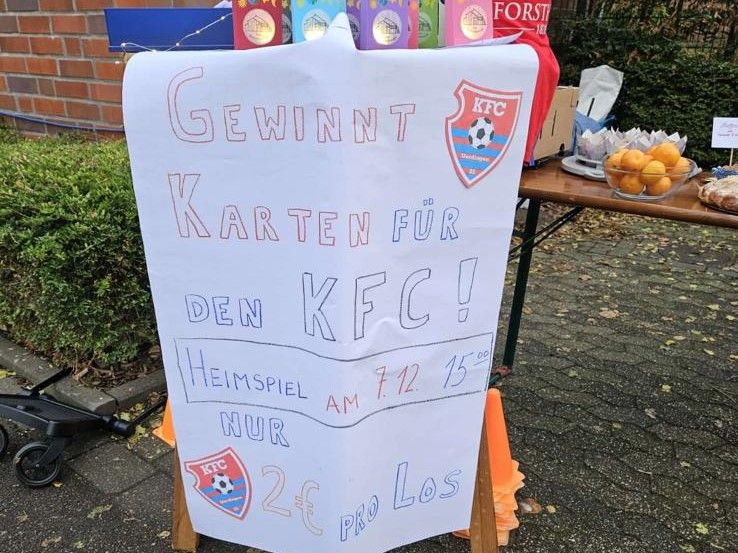 FORST
GEWINNT
KFC
Uerdingen
KARTEN FÜR
DEN KFC!
HEIMSPIEL AM 7.12. 15⁰⁰
NUR
KFC
Uerdingen
2€ PRO LOS